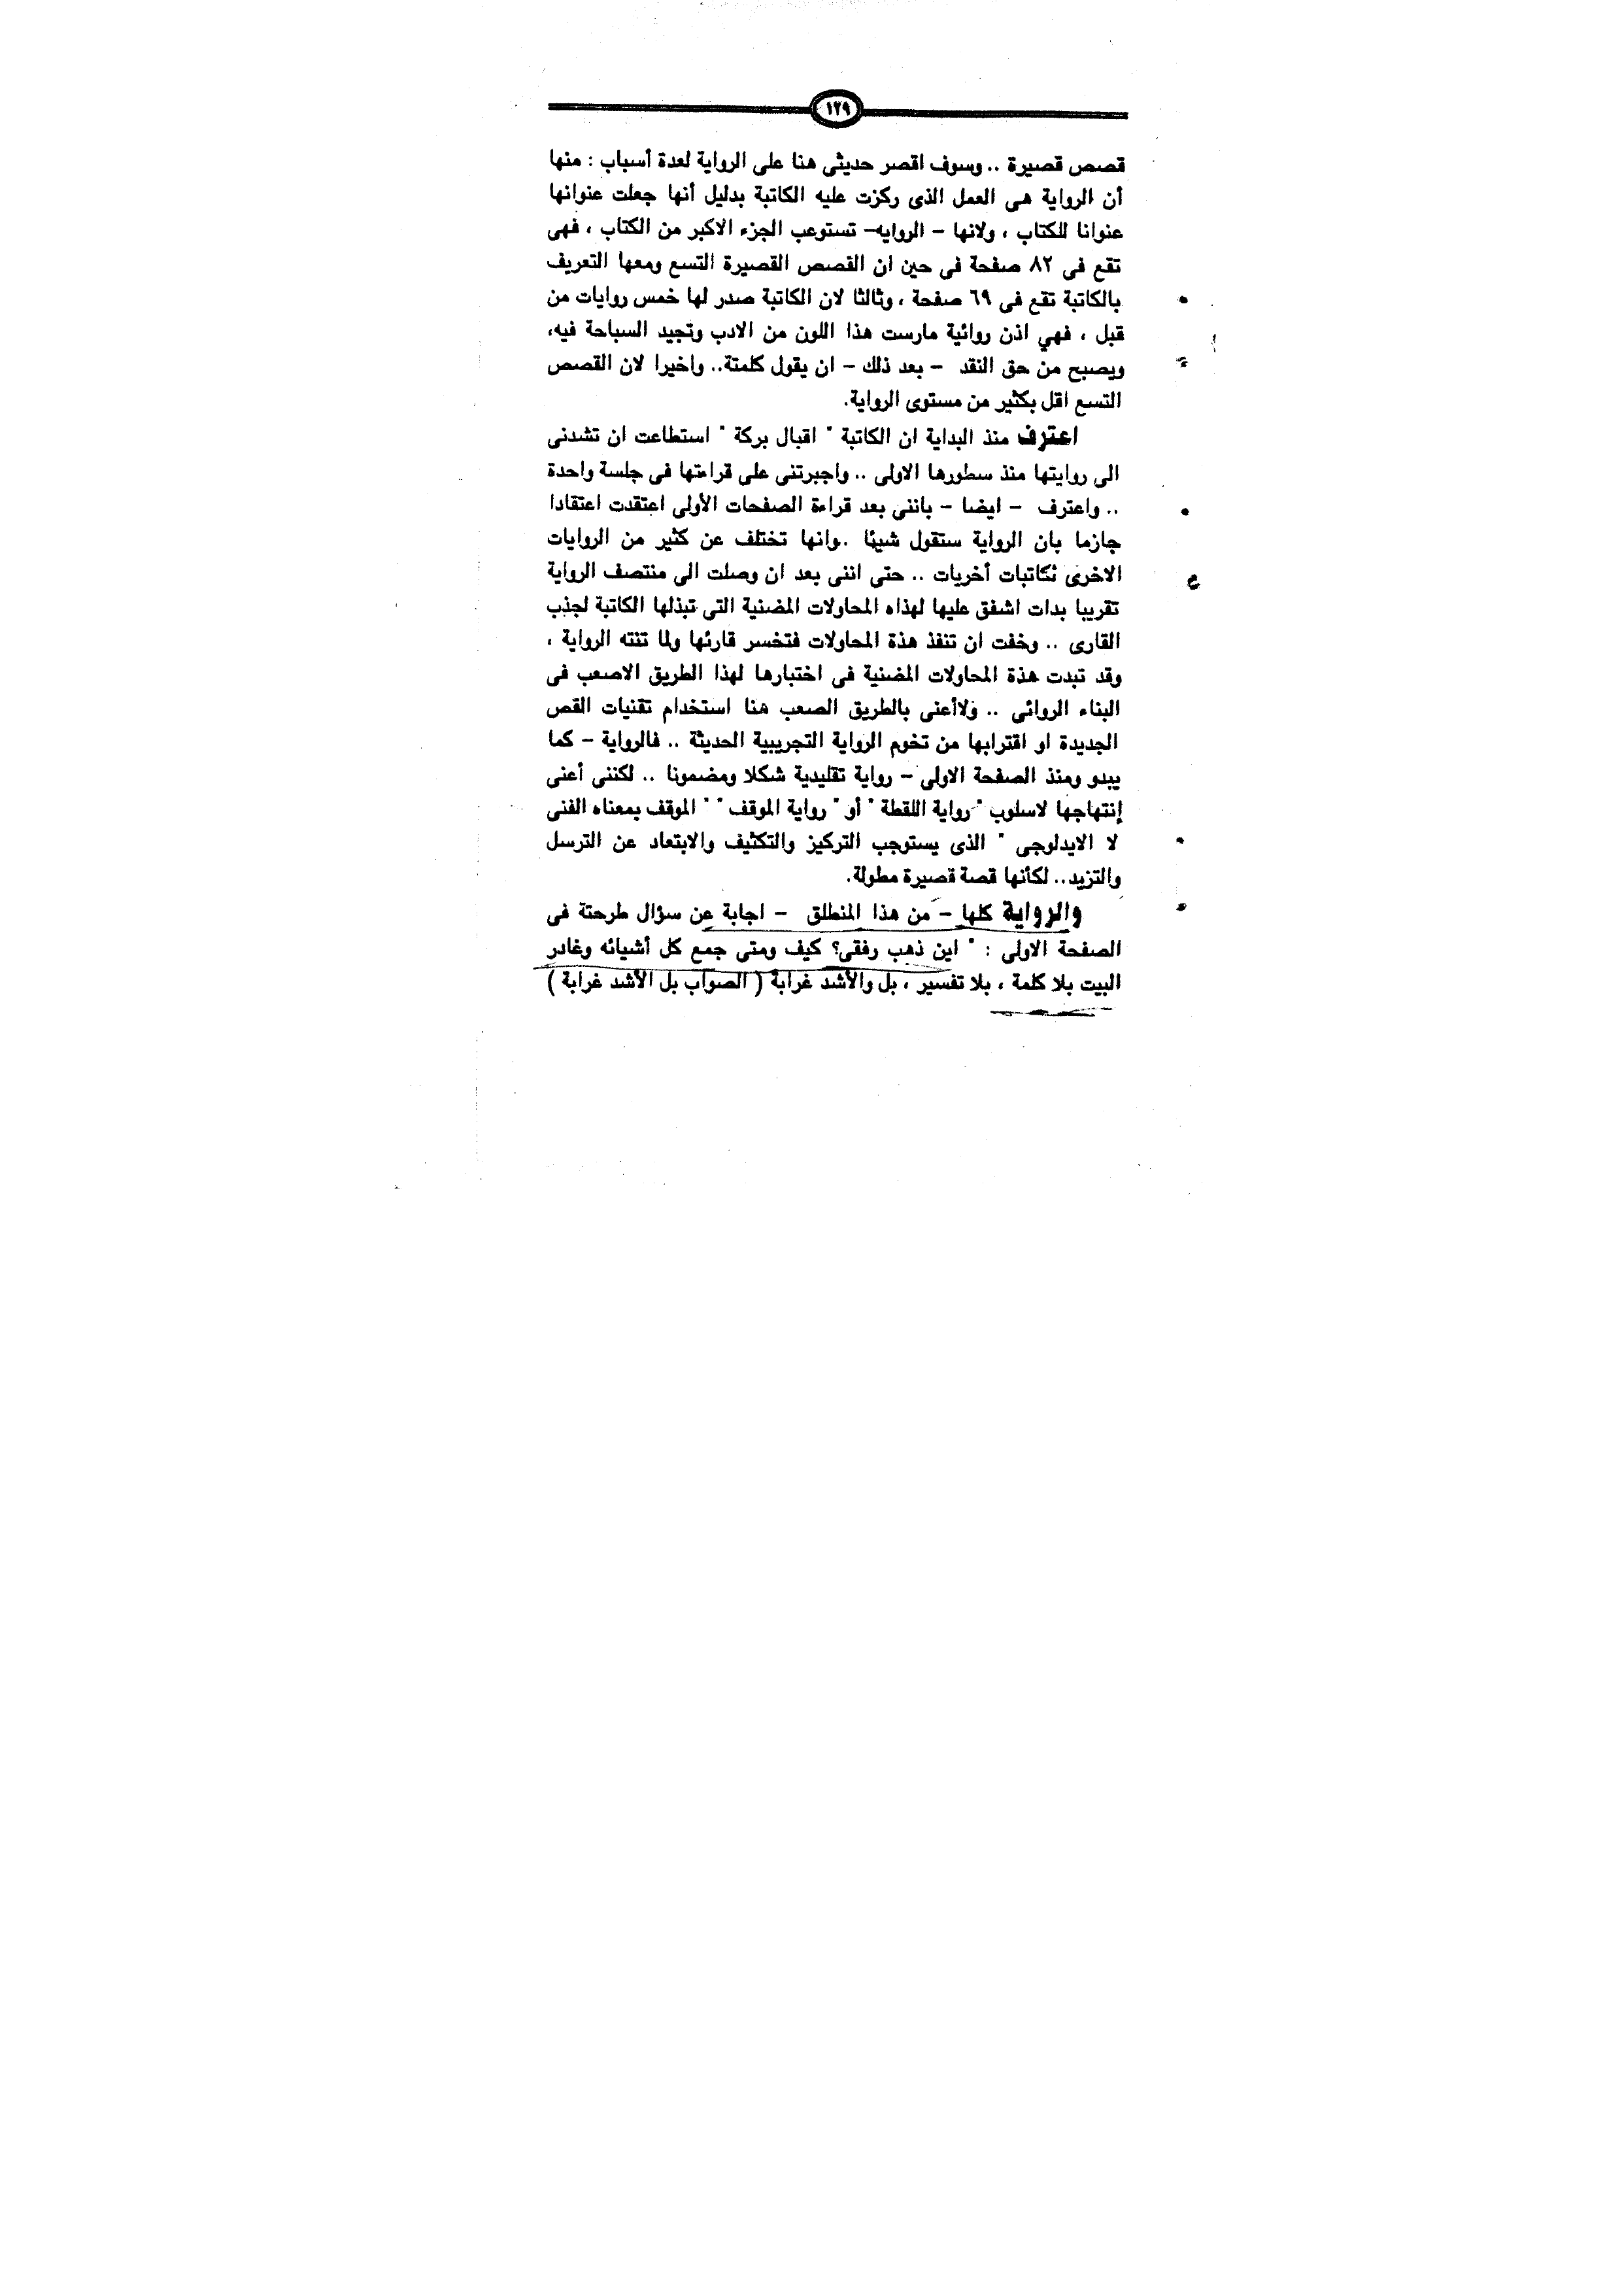 ١٢٩
قصص قصيرة .. وسوف اقصر حديثى هنا على الرواية لعدة أسباب : منها
أن الرواية هى العمل الذى ركزت عليه الكاتبة بدليل أنها جعلت عنوانها
عنوانا للكتاب ، ولانها - الروايه- تستوعب الجزء الاكبر من الكتاب ، فهى
تقع فى ٨٢ صفحة فى حين ان القصص القصيرة التسع ومعها التعريف
بالكاتبة تقع فى ٦٩ صفحة ، وثالثا لان الكاتبة صدر لها خمس روايات من
قبل ، فهي اذن روائية مارست هذا اللون من الادب وتجيد السباحة فيه،
ويصبح من حق النقد - بعد ذلك - ان يقول كلمتة.. واخيرا لان القصص
التسع اقل بكثير من مستوى الرواية.
اعترف منذ البداية ان الكاتبة " اقبال بركة " استطاعت ان تشدنى
الى روايتها منذ سطورها الاولى .. واجبرتنى على قراءتها فى جلسة واحدة
.. واعترف - ايضا - باننى بعد قراءة الصفحات الأولى اعتقدت اعتقادا
جازما بان الرواية ستقول شيئا .وانها تختلف عن كثير من الروايات
الاخرى لكاتبات أخريات .. حتى اننى بعد ان وصلت الى منتصف الرواية
تقريبا بدات اشفق عليها لهذاه المحاولات المضنية التى تبذلها الكاتبة لجذب
القارى .. وخفت ان تنفذ هذة المحاولات فتخسر قارئها ولما تنته الرواية ،
وقد تبدت هذة المحاولات المضنية فى اختبارها لهذا الطريق الاصعب فى
البناء الروائى .. ولاأعنى بالطريق الصعب هنا استخدام تقنيات القص
الجديدة او اقترابها من تخوم الرواية التجريبية الحديثة .. فالرواية - كما
يبدو ومنذ الصفحة الاولى - رواية تقليدية شكلا ومضمونا .. لكننى أعنى
إنتهاجها لاسلوب "رواية اللقطة " أو " رواية الموقف " " الموقف بمعناه الفنى
لا الايدلوجى " الذى يستوجب التركيز والتكثيف والابتعاد عن الترسل
والتزيد.. لكأنها قصة قصيرة مطولة.
والرواية كلها - من هذا المنطلق - اجابة عن سؤال طرحتة فى
الصفحة الاولى : " اين ذهب رفقى؟ كيف ومتى جمع كل أشيائه وغادر
البيت بلا كلمة ، بلا تفسير ، بل والأشد غرابة ( الصواب بل الأشد غرابة )